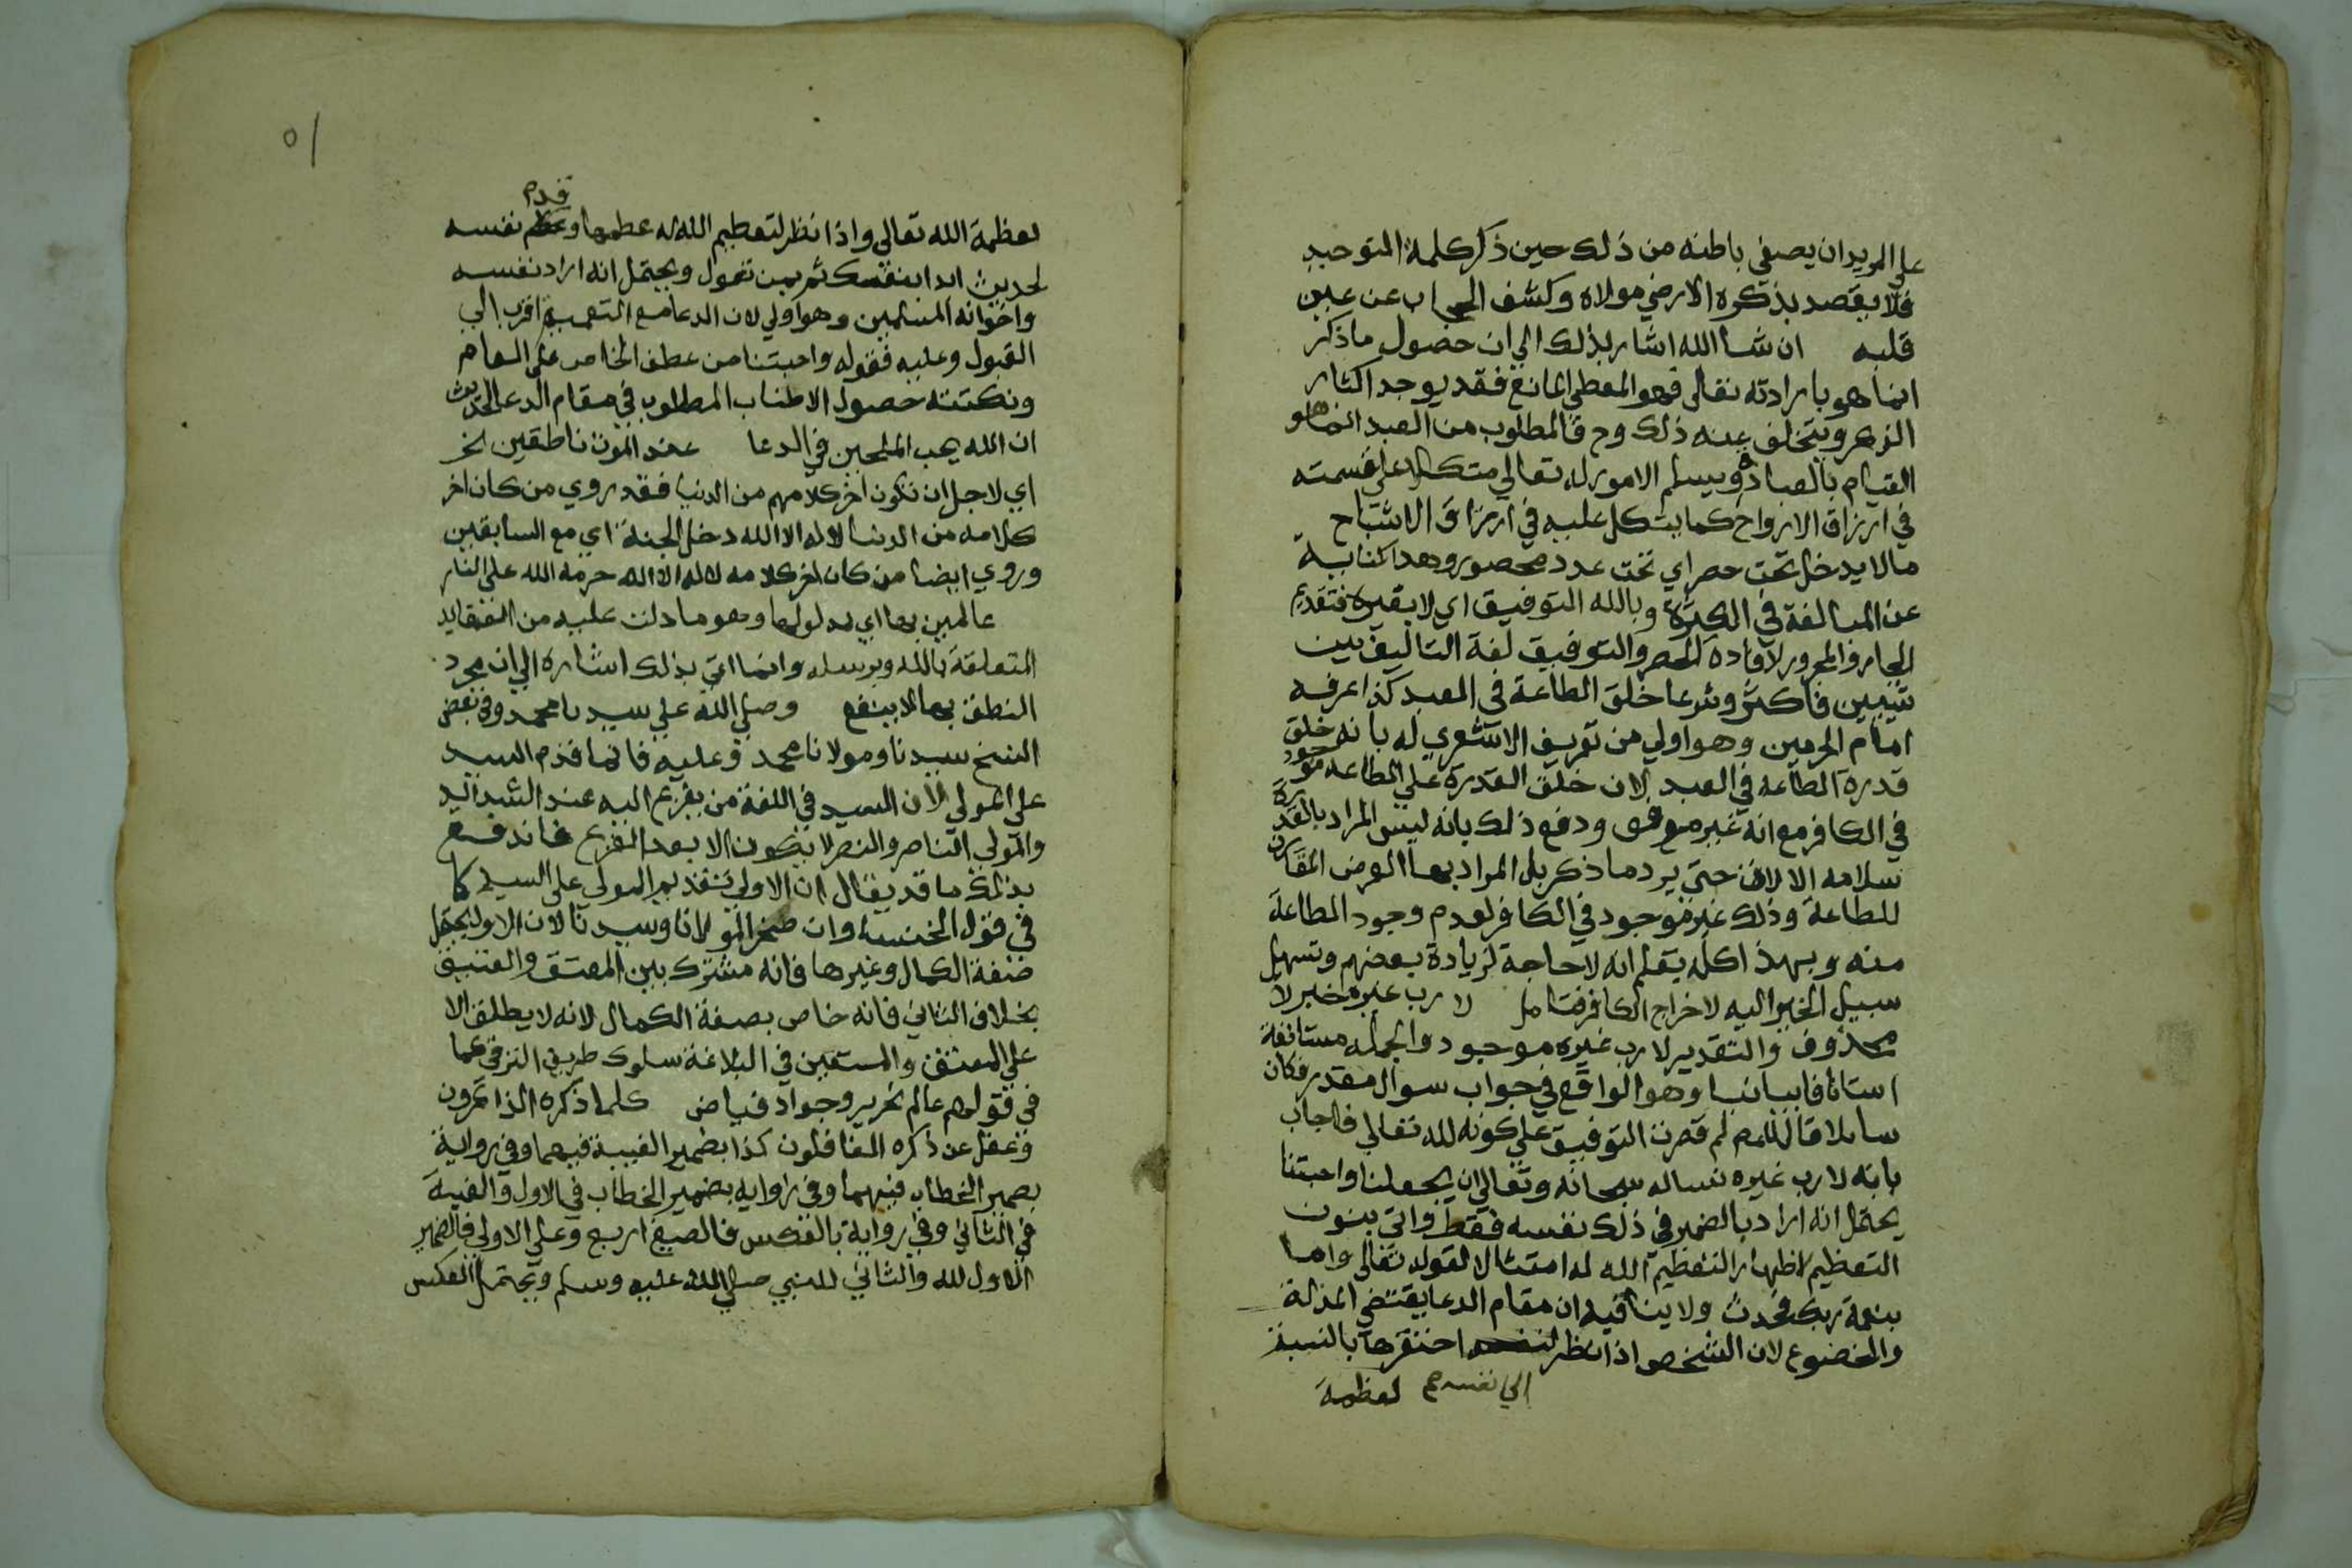 على المريد ان يصفي باطنه من ذلك حين ذكر كلمة التوحيد
فلا يقصد بذكره الا رضي مولاه وكشف الحجاب عن عين
قلبه ان شا الله اشار بذلك الي ان حصول ما ذكر
انما هو بارادته تعالى فهو المعطي المانع فقد يوجد اكثار
الذكر ويتخلف عنه ذلك وح فالمطلوب من العبد انما هو
القيام بالعبادة ويسلم الامور له تعالي متكلا علي قسمته
في ارزاق الارواح كما يتكل عليه في ارزاق الاشباح
مالا يدخل تحت حصر اي تحت عدد محصور وهذا كناية
عن المبالغة في الكثرة وبالله التوفيق اي لا بغيره فتقديم
الجار والمجرور لافادة الحصر والتوفيق لغة التاليف بين
شيئين فاكثر وشرعا خلق الطاعة في العبد كذا عرفه
امام الحرمين وهو اولي من تعريف الاشعري له بانه خلق
قدرة الطاعه في العبد لان خلق القدرة علي الطاعه موجود
في الكافر مع انه غير موفق ودفع ذلك بانه ليس المراد بالقدرة
سلامه الالات حتي يرد ما ذكر بل المراد بها العرض المقارن
للطاعة وذلك غير موجود في الكافر لعدم وجود الطاعة
منه وبهذا كله يعلم انه لا حاجة لزيادة بعضهم وتسهيل
سبيل الخير اليه لاخراج الكافر فتامل لا رب غيره خبر لا
محذوف والتقدير لا رب غيره موجود والجمله مستانفة
استئنافا بيانيا وهو الواقع في جواب سوال مقدر فكان
سائلا قال للمص لم قصرت التوفيق علي كونه لله تعالي فاجاب
بانه لا رب غيره نساله سبحانه وتعالي ان يجعلنا واحبتنا
يحتمل انه اراد بالضمير في ذلك نفسه فقط واتي بنون
التعظيم لاظهار التعظيم الله له امتثالا لقوله تعالى واما
بنعمة ربك فحدث ولا ينافيه ان مقام الدعا يقتضي المذلة
والخضوع لان الشخص اذا نظر احتقرها بالنسبة
الي نفسه صح لعظمة
٥١
قدم
لعظمة الله تعالى واذا نظر لتعظيم الله له عظمها و نفسه
لحديث ابدا بنفسك ثم بمن تعول ويحتمل انه اراد نفسه
واخوانه المسلمين وهو اولي لان الدعا مع التعميم اقرب الي
القبول وعليه فقوله واحبتنا من عطف الخاص على العام
ونكتته حصول الاطناب المطلوب في مقام الدعا لحديث
ان الله يحب الملحين في الدعا عند الموت ناطقين الخ
اي لاجل ان تكون اخر كلامهم من الدنيا فقد روي من كان اخر
كلامه من الدنيا لا اله الا الله دخل الجنة اي مع السابقين
وروي ايضا من كان اخر كلامه لا اله الا الله حرمه الله على النار
عالمين بها اي بمدلولها وهو ما دلت عليه من العقايد
المتعلقة بالله وبرسله وانما اتي بذلك اشارة الي ان مجرد
النطق بها لا ينفع وصلي الله علي سيدنا محمد وفي بعض
النسخ سيدنا ومولانا محمد وعليه فانما قدم السيد
علي المولي لان السيد في اللغة من يفزع اليه عند الشدائيد
والمولي الناصر والنصر لا يكون الا بعد الفزع فاندفع
بذلك ما قد يقال ان الاولي تقديم المولي على السيد كما
في قول الخنساء وان صخرا لمولانا وسيدنا لان الاول يحتمل
صفة الكمال وغيرها فانه مشترك بين المعتق والعتيق
بخلاف الثاني فانه خاص بصفة الكمال لانه لا يطلق الا
علي المعتق والمستعين في البلاغة سلوك طريق الترقي كما
في قولهم عالم نحرير وجواد فياض كلما ذكره الذاكرون
وغفل عن ذكره الغافلون كذا بضمير الغيبة فيهما وفي رواية
بضمير الخطاب فيهما وفي روايه بضمير الخطاب في الاول والغيبة
في الثاني وفي رواية بالعكس فالصيغ اربع وعلي الاولي فالضمير
الاول لله والثاني للنبي صلي الله عليه وسلم ويحتمل العكس